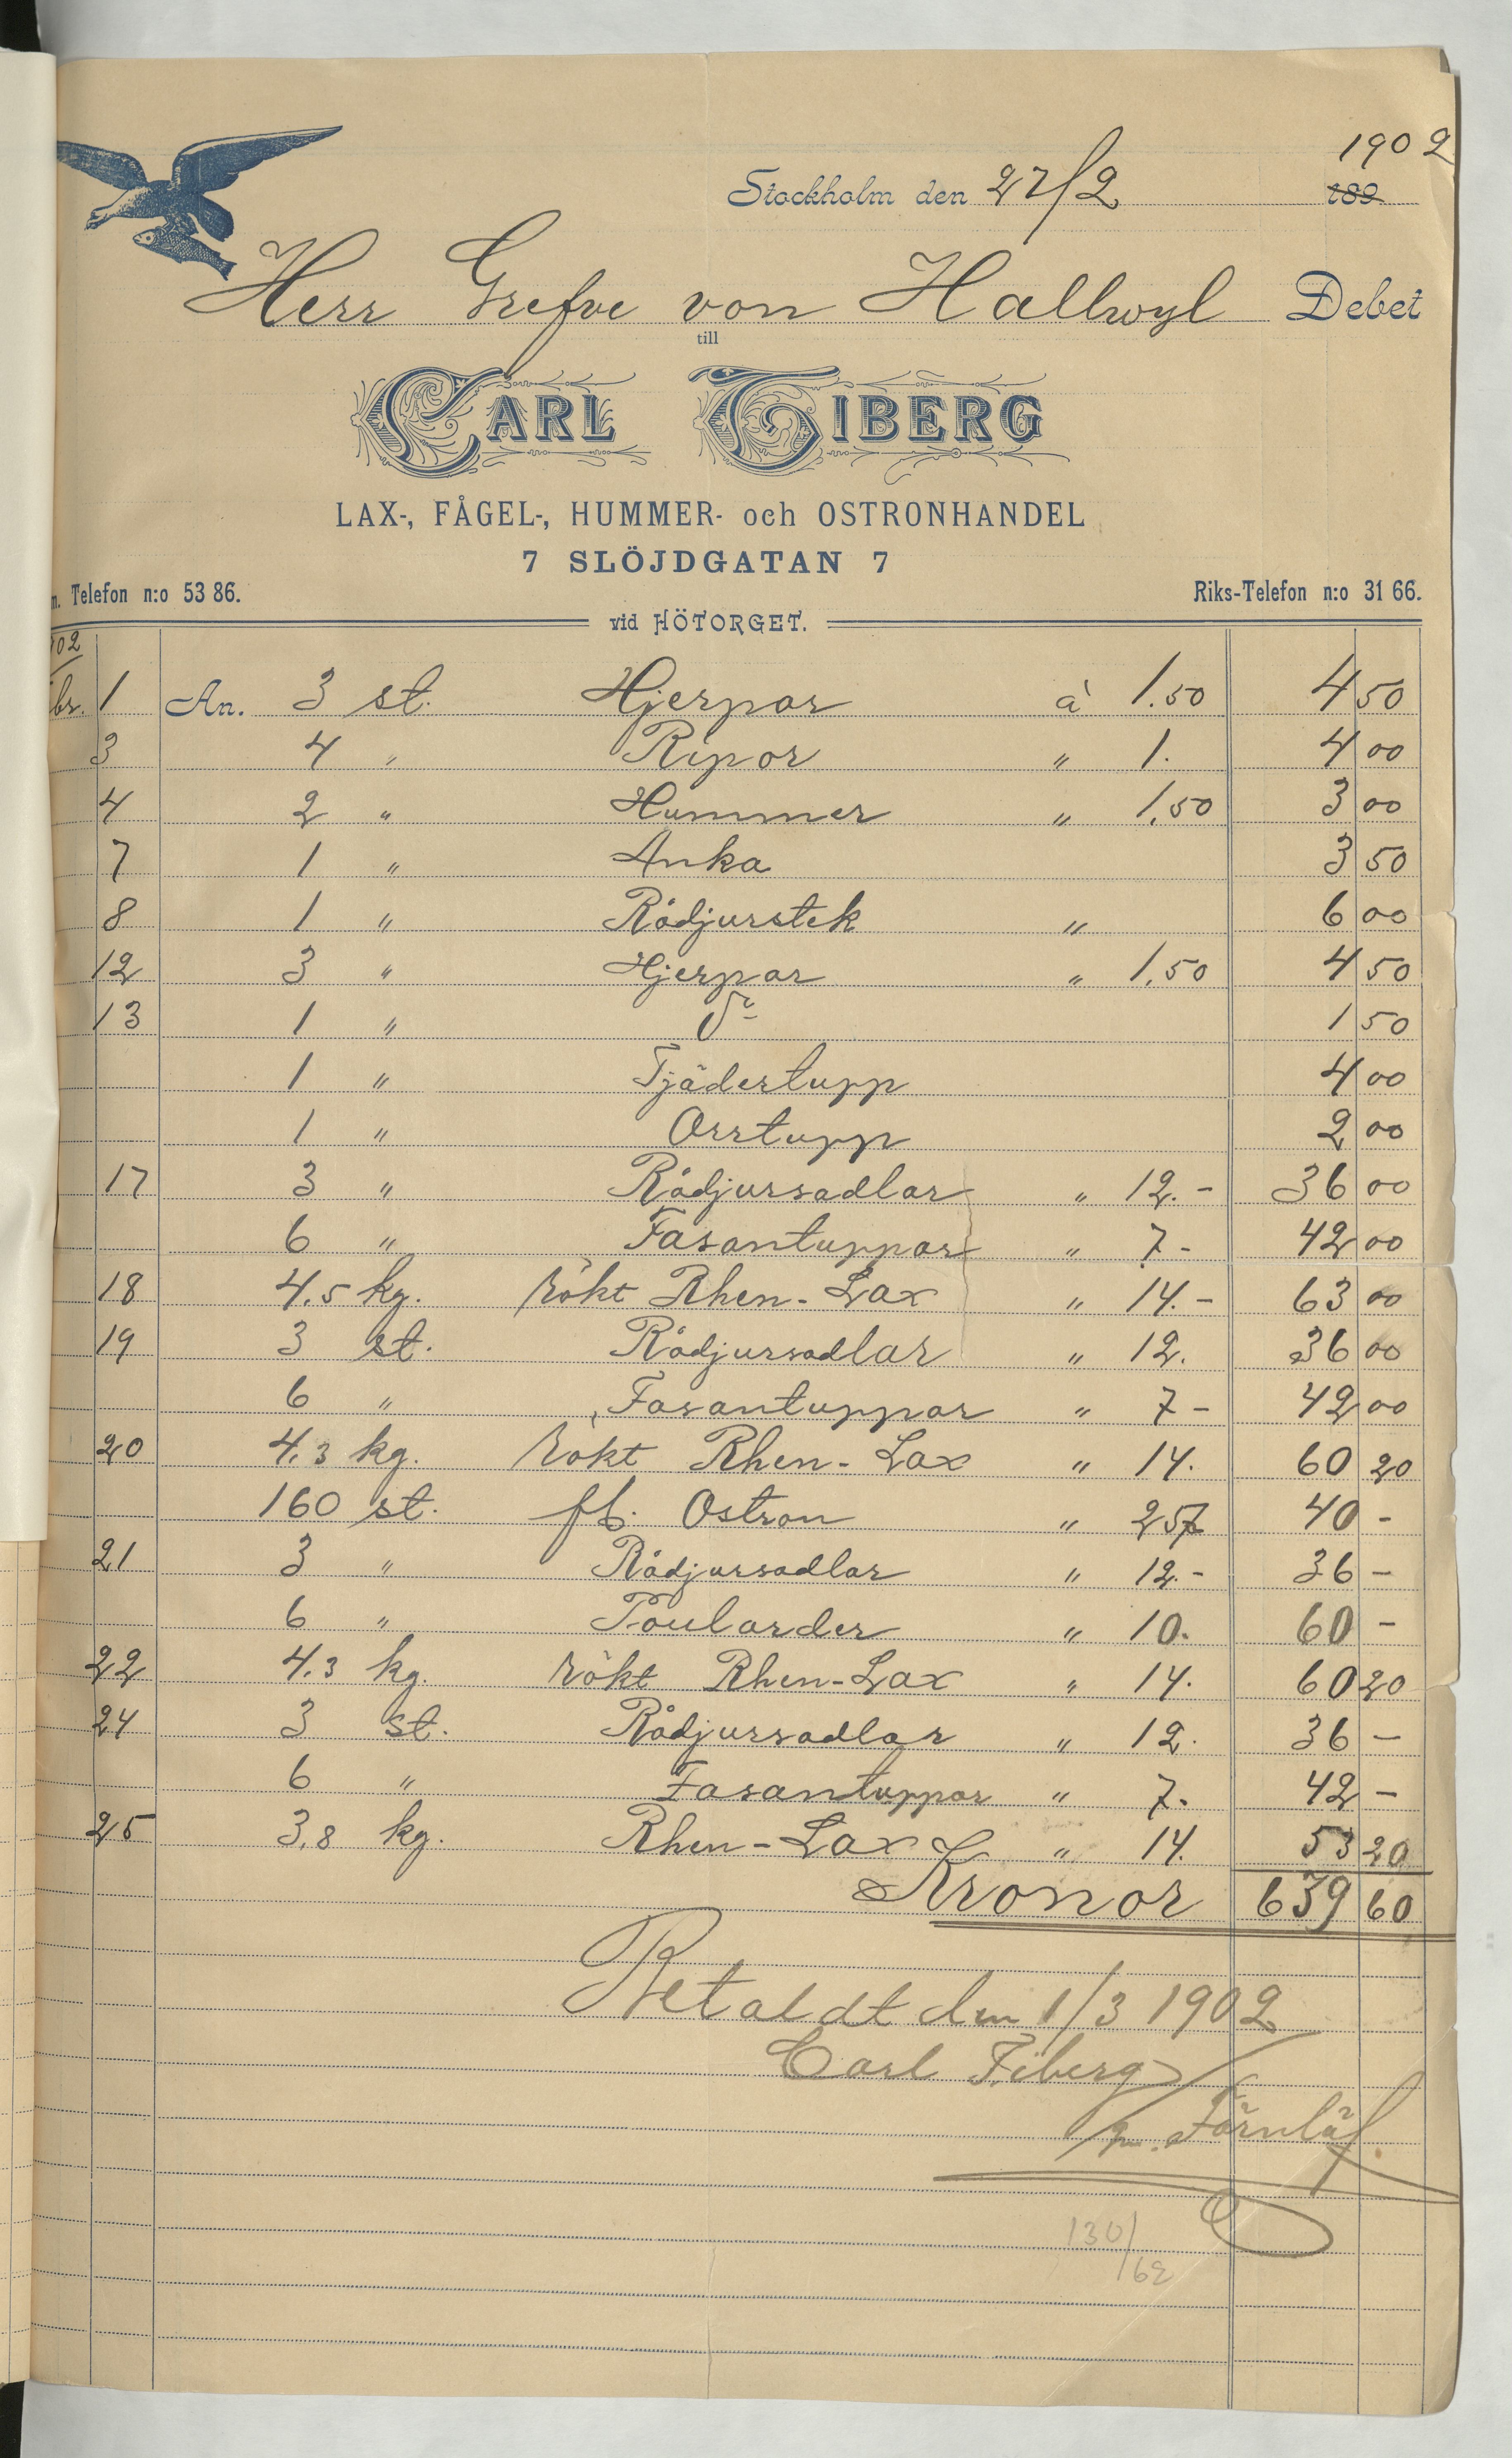 1902
Stockholm den 27/2 189
Herr Grefve von Hallwyl Debet
till
CARL TIBERG
LAX-, FÅGEL-, HUMMER- och OSTRONHANDEL
7 SLÖJDGATAN 7
Telefon n:o 53 86. Riks-Telefon n:o 31 66.
vid HÖTORGET.
02
br. 1 An. 3 st. Hjerpar à 1.50 4 50
3 4 " Ripor " 1. 4 00
4 2 " Hummer " 1.50 3 00
7 1 " Anka 3 50
8 1 " Rådjurstek " 6 00
12 3 " Hjerpar " 1.50 4 50
13 1 " 1 50
1 " Tjädertupp 4 00
1 " Orrtupp 2 00
17 3 " Rådjursadlar " 12.- 36 00
6 " Fasantuppar " 7- 42 00
18 4.5 kg. rökt Rhen-Lax " 14.- 63 00
19 3 st. Rådjursadlar " 12. 36 00
6 " Fasantuppar " 7- 42 00
20 4.3 kg. rökt Rhen-Lax " 14. 60 20
160 st. fl. Ostron " 25 40 -
21 3 " Rådjursadlar " 12.- 36 -
6 " Poularder " 10. 60 -
22 4.3 kg. rökt Rhen-Lax " 14. 60 20
24 3 st. Rådjursadlar " 12. 36 -
6 " Fasantuppar " 7. 42 -
25 3.8 kg. Rhen-Lax " 14. 53 20
Kronor 639 60
Betaldt den 1/3 1902
Carl Tiberg
130/62